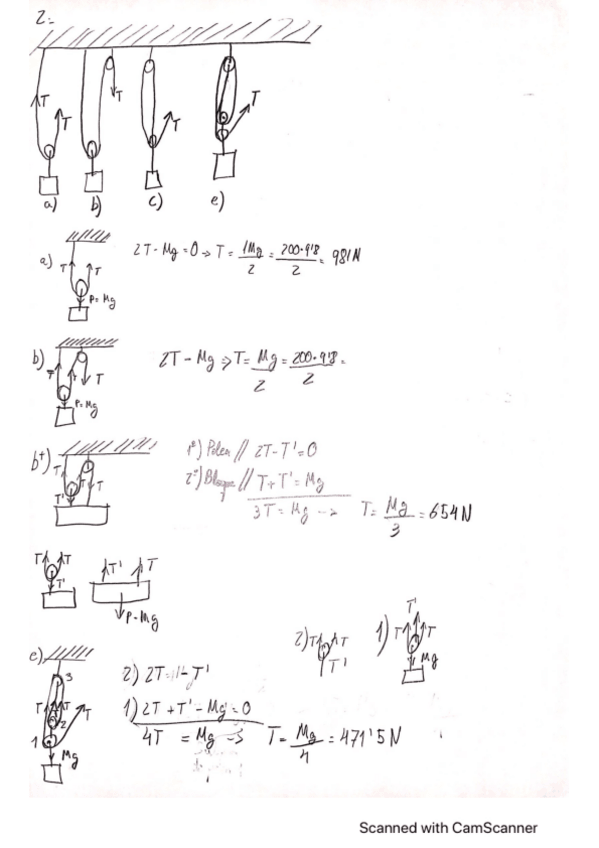 2.-
T T T T T
a) b) c) e)
a) T T P=Mg 2T-Mg=0 → T = 1Mg/2 = 200·9'8/2 = 981N
b) T T P=Mg 2T-Mg ⇒ T = Mg/2 = 200·9'8/2 =
b+) T T T T' 1º) Polea // 2T-T'=0
2º) Bloque // T+T'=Mg
3T=Mg → T = Mg/3 = 654N
T T T' T' T P=Mg
2) T T T' 1) T' T T Mg
e) 3 T T 2 T 1 Mg
2) 2T = T'
1) 2T+T'-Mg=0
4T = Mg → T = Mg/4 = 471'5N
Scanned with CamScanner